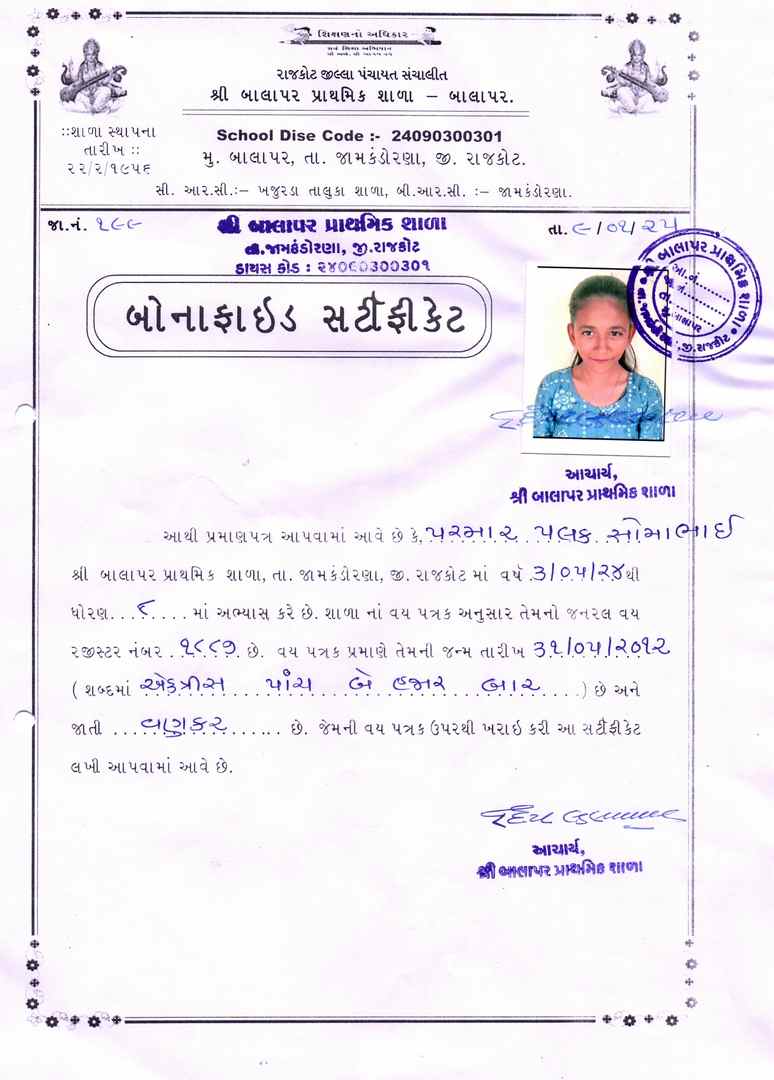 શિક્ષણનો અધિકાર
સર્વ શિક્ષા અભિયાન
રાજકોટ જીલ્લા પંચાયત સંચાલીત
શ્રી બાલાપર પ્રાથમિક શાળા – બાલાપર.
::શાળા સ્થાપના
તારીખ ::
૨૨/૨/૧૯૫૬
School Dise Code :- 24090300301
મુ. બાલાપર, તા. જામકંડોરણા, જી. રાજકોટ.
સી. આર.સી.:– ખજુરડા તાલુકા શાળા, બી.આર.સી. :– જામકંડોરણા.
જા.નં. ૧૯૯
શ્રી બાલાપર પ્રાથમિક શાળા
તા.જામકંડોરણા, જી.રાજકોટ
ડાયસ કોડ : ૨૪૦૯૦૩૦૦૩૦૧
તા. ૯/૦૧/૨૫
બાલાપર પ્રાથમિક શાળા
જી.રાજકોટ
બોનાફાઇડ સર્ટીફીકેટ
આચાર્ય,
શ્રી બાલાપર પ્રાથમિક શાળા
આથી પ્રમાણપત્ર આપવામાં આવે છે કે, પરમાર પલક સોમાભાઈ
શ્રી બાલાપર પ્રાથમિક શાળા, તા. જામકંડોરણા, જી. રાજકોટ માં વર્ષ .૩/૦૫/૨૪થી
ધોરણ... ૬ .... માં અભ્યાસ કરે છે. શાળા નાં વય પત્રક અનુસાર તેમનો જનરલ વય
રજીસ્ટર નંબર . ૧૮૮૭. છે. વય પત્રક પ્રમાણે તેમની જન્મ તારીખ ૩૧/૦૫/૨૦૧૨
( શબ્દમાં એકત્રીસ .... પાંચ .. બે હજાર બાર .....) છે અને
જાતી .... વણકર ....... છે. જેમની વય પત્રક ઉપરથી ખરાઇ કરી આ સર્ટીફીકેટ
લખી આપવામાં આવે છે.
આચાર્ય,
શ્રી બાલાપર પ્રાથમિક શાળા